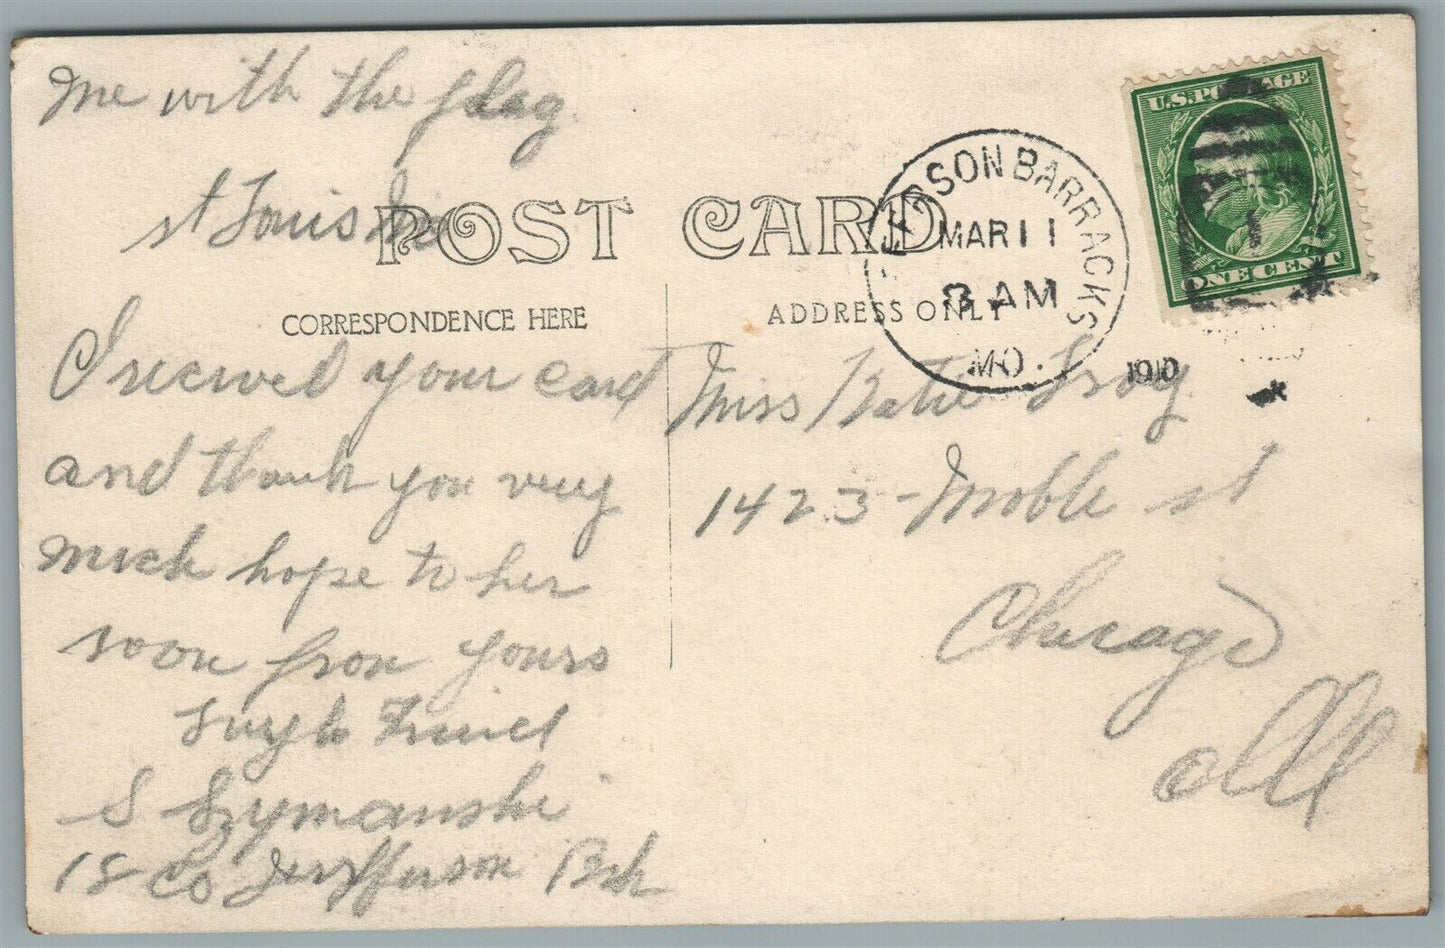 me with the flag
st Louis Mo
POST CARD
CORRESPONDENCE HERE
ADDRESS ONLY
U.S. POSTAGE
ONE CENT
JEFFERSON BARRACKS
MAR 11
8 AM
MO.
1910
I recived your card
and thank you very
much hope to her
soon from yours
Friend
S Szymanski
18 Co Jeryfferson Brk
Miss Katie
1423 - Noble st
Chicago
Ill